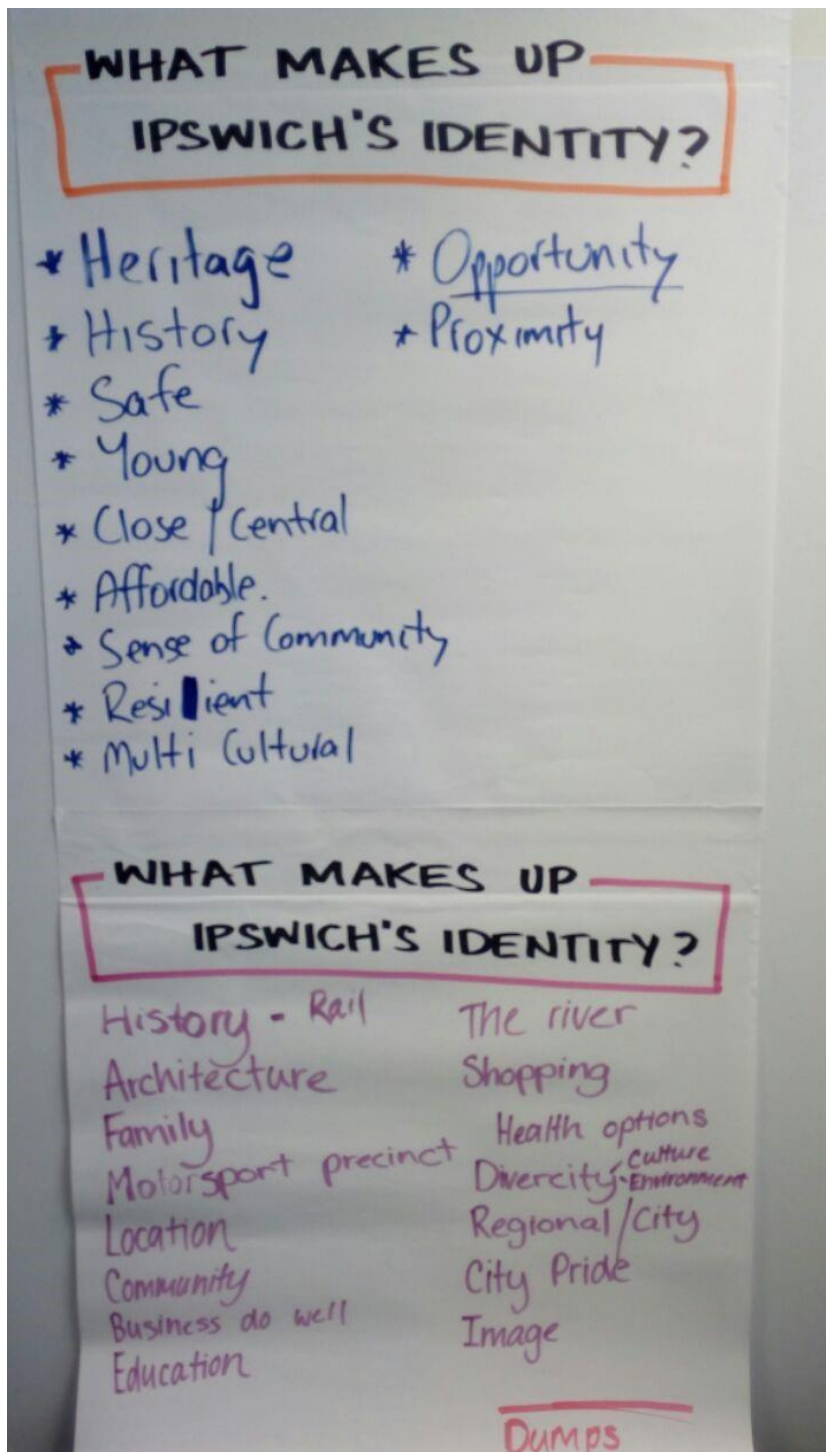 WHAT MAKES UP
IPSWICH'S IDENTITY?
* Heritage
* History
* Safe
* Young
* Close / Central
* Affordable.
* Sense of Community
* Resilient
* Multi Cultural
* Opportunity
* Proximity
WHAT MAKES UP
IPSWICH'S IDENTITY?
History - Rail
Architecture
Family
Motorsport precinct
Location
Community
Business do well
Education
The river
Shopping
Health options
Divercity - Culture
- Environment
Regional / City
City Pride
Image
Dumps